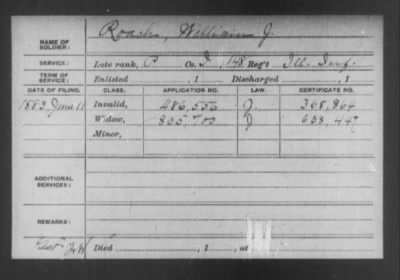 NAME OF SOLDIER: Roach, William J.
SERVICE: Late rank, P Co. I, 148 Reg't Ill. Inf.
TERM OF SERVICE: Enlisted , 1 Discharged , 1
DATE OF FILING. CLASS. APPLICATION NO. LAW. CERTIFICATE NO.
1883 June 11 Invalid, 486,556 J. 368,864
Widow, 865,700 J 638,447
Minor,
ADDITIONAL SERVICES:
REMARKS:
Died , 1 , at